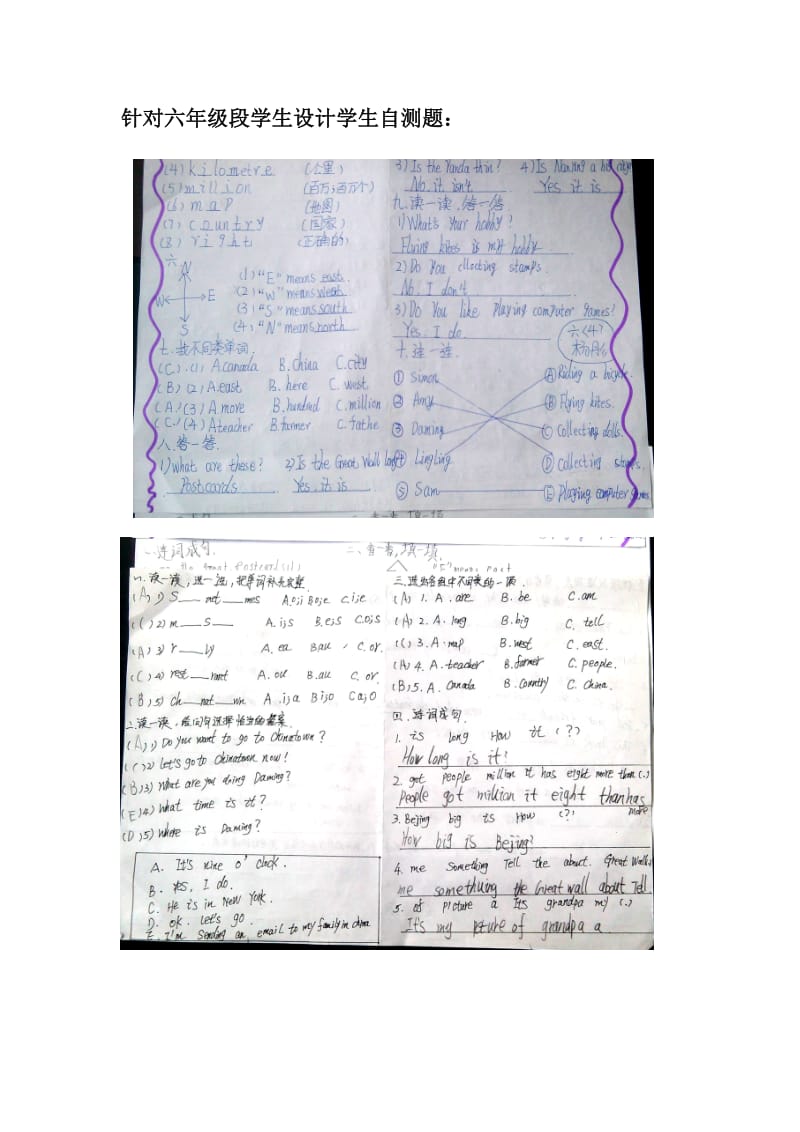 针对六年级段学生设计学生自测题：
(4) kilometre (公里)
(5) million (百万;百万个)
(6) map (地图)
(7) country (国家)
(8) right (正确的)
六
N
W E
S
(1) "E" means east.
(2) "W" means west
(3) "S" means south
(4) "N" means north
七.找不同类单词.
(C).(1) A.canada B.China C.city
(B)(2) A.east B. here C. west.
(A)(3) A.move B.hundred C.million
(C)(4) A teacher B.farmer C.fathe
八.答一答.
1) What are these? 2) Is the Great Wall long
Postcards Yes. it is
3) Is the Panda thin? 4) Is Nanjing a
No. it isn't Yes it is
九.读一读.答一答
1) What's Your hobby?
Flying kites is my hobby
2) Do You cllecting stamps.
No. I don't.
3) Do You Like Playing computer games?
Yes. I do.
六(4)
十.连一连.
① Simon Ⓐ Riding a bicycle.
② Amy Ⓑ Flying kites.
③ Daming Ⓒ Collecting dolls.
④ Lingling Ⓓ Collecting stamps.
⑤ Sam Ⓔ Playing computer games
一.连词成句. 二、查一查,填一填.
一.读一读,选一选,把单词补充完整.
(A)1) S__ not__mes A.oji B.oje C.ije
(C)2) m__ S__ A.ijs B.ejs C.ojs
(A)3) r__ly A. ea B.au C. or.
(C)4) rest__rant A.ou B. au C. or.
(B)5) Ch__not__wn A.ija B ijo C ajo
二.读一读,
(A)1) Do you want to go to Chinatown?
(C)2) Let's go to Chinatown now!
(B)3) What are you doing Daming?
(E)4) What time is it?
(D)5) Where is Daming?
A. It's nine o'clock.
B. Yes, I do.
C. He is in New York.
D. ok. Let's go.
E. I'm Sending an email to my family in china
三.选出各组中不同类的一项.
(A) 1. A. are B. be C. am
(A) 2. A. long B. big C. tell
(C) 3. A. map B. west C. east.
(A) 4. A. teacher B. farmer C. people.
(B) 5. A. Canada B. Country C. China.
四.连词成句.
1. is long How it (?)
How long is it?
2. got people million it has eight more than (.)
People got million it eight than has more
3. Bejing big is How (?)
How big is Bejing?
4. me Something Tell the about. Great Wall
me something the Great wall about Tell
5. of picture a Its grandpa my (.)
It's my pture of grandpa a.